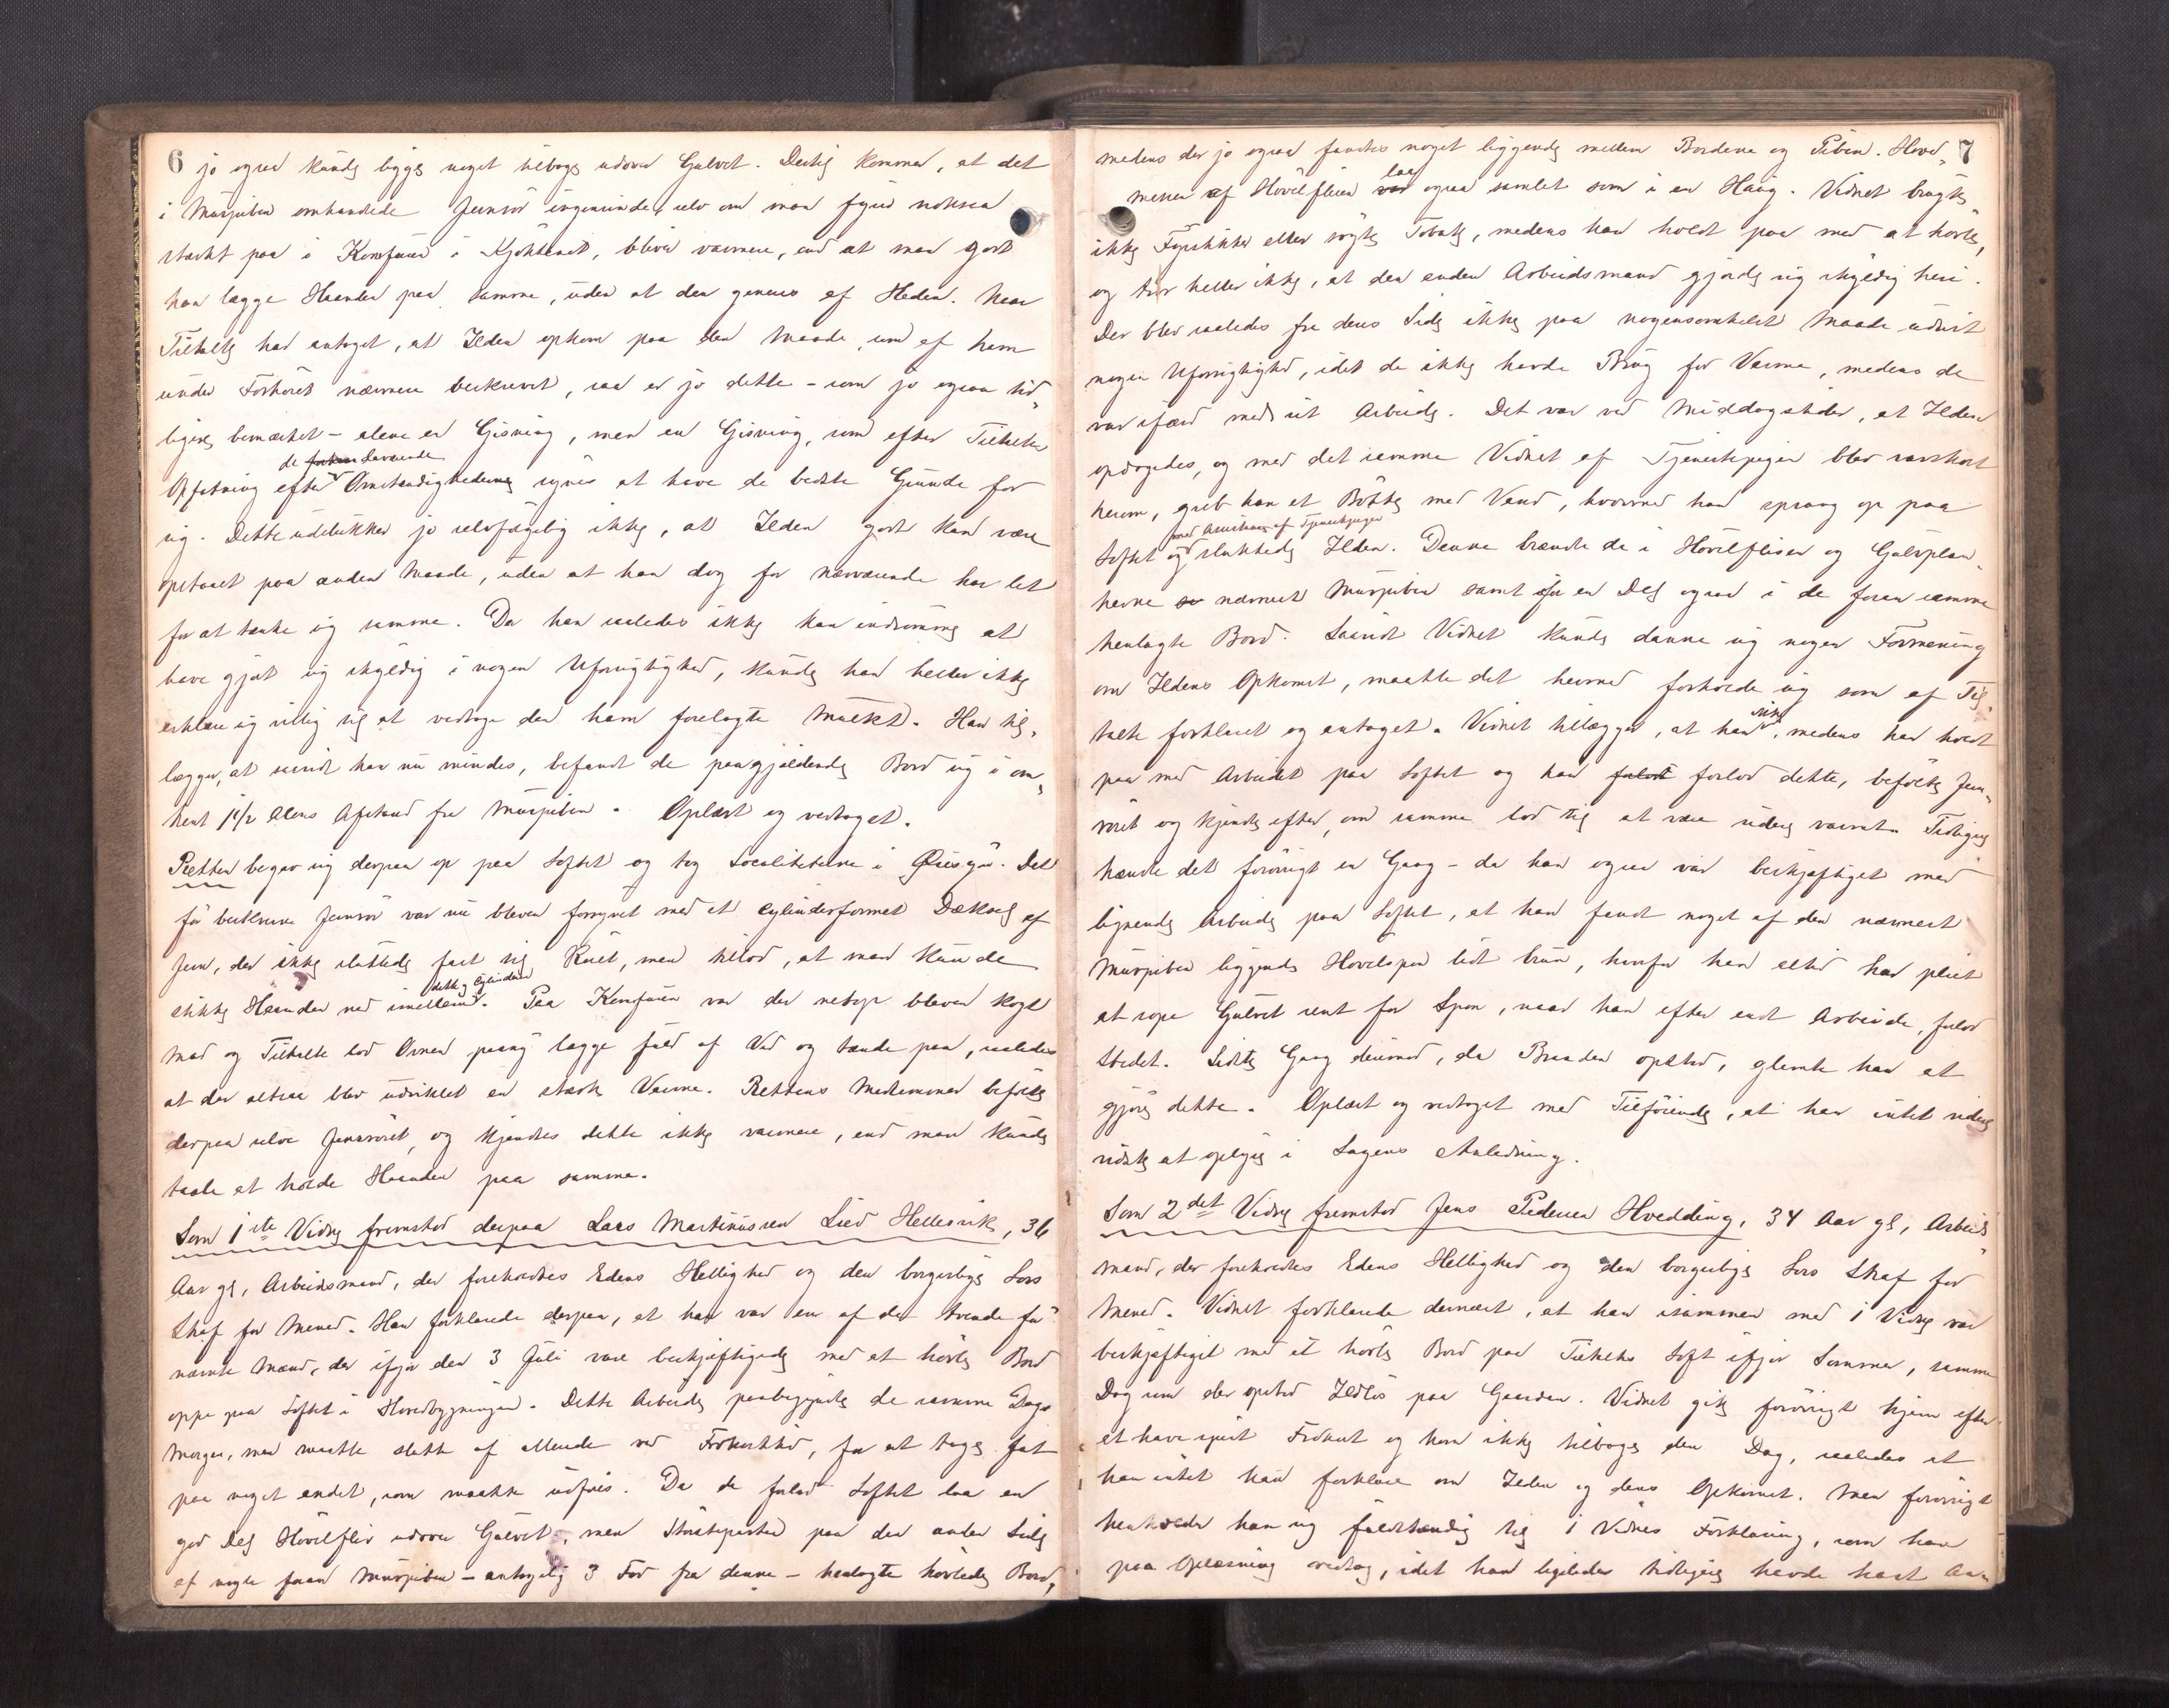 6
jo ogsaa kunde ligge noget tilbage udover Gulvet. Dertil kommer, at det
i Murpiben omhandlede Jernrør ingenlunde, selv om man fyrer noksaa
stærkt paa i Komfuren i Kjøkkenet, bliver varmere, end at man godt
kan lægge Haanden paa samme, uden at den generes af Heden. Naar
Tiltalte har antaget, at Ilden opkom paa den Maade, som af ham
under Forhøret nærmere beskrevet, saa er jo dette – som jo ogsaa tid„
ligere bemærket – alene en Gisning, men en Gisning, som efter Tiltaltes
de forhaandenværende
Opfatning efter Omstændighederne synes at have de bedste Grunde for
sig. Dette udelukker jo selvfølgelig ikke, at Ilden godt kan være
opstaaet paa anden Maade, uden at han dog for nærværende har let
for at tænke sig samme. Da han saaledes ikke kan indrømme at
have gjort sig skyldig i nogen Uforsigtighed, kunde han heller ikke
erklære sig villig til at vedtage den ham forelagte Mulkt. Han til„
lægger, at saavidt han nu mindes, befandt de paagjældende Bord sig i om„
trent 1½ Alens Afstand fra Murpiben. Oplæst og vedtaget.
Retten begav sig derpaa op paa Loftet og tog Localiteterne i Øiesyn. Det
før beskrevne Jernrør var nu bleven forsynet med et cylinderformet Dæksel af
Jern, der ikke sluttede fast til Røret, men tillod, at man kunde
dette og Cylinderen
stikke Haanden ned imellem. Paa Komfuren var der netop bleven kogt
Mad og Tiltalte lod Ovnen paany lægge fuld af Ved og tænde paa, saaledes
at der altsaa blev udviklet en stærk Varme. Rettens Medlemmer befølte
derpaa selve Jernrøret, og kjendtes dette ikke varmere, end man kunde
taale at holde Haanden paa samme.
Som 1ste Vidne fremstod derpaa Lars Martinussen Lied Hellesvik, 36
Aar gl, Arbeidsmand, der foreholdtes Edens Hellighed og den borgerlige Lovs
Straf for Mened. Han forklarede derpaa, at han var en af de tvende før
nævnte Mænd, der ifjor den 3 Juli vare beskjæftigede med at høvle Bord
oppe paa Loftet i Hovedbygningen. Dette Arbeide paabegyndte de samme Dags
Morgen, men maatte slutte af allerede ved Frokosttid, for at tage fat
paa noget andet, som maatte udføres. Da de forlod Loftet laa en
god Del Høvelflis udover Gulvet, men Størsteparten paa den anden Side
af nogle foran Murpiben – antagelig 3 Fod fra denne – henlagte høvlede Bord,
7
medens der jo ogsaa fandtes noget liggende mellem Bordene og Piben. Hoved„
laa
massen af Høvelflisen var ogsaa samlet som i en Haug. Vidnet brugte
ikke Fyrstikker eller røgte Tobak, medens han holdt paa med at høvle,
og tror heller ikke, at den anden Arbeidsmand gjorde sig skyldig heri.
Der blev saaledes fra deres Side ikke paa nogensomhelst Maade udvist
nogen Uforsigtighed, idet de ikke havde Brug for Varme, medens de
var ifærd med sit Arbeide. Det var ved Middagstider, at Ilden
opdagedes, og med det samme Vidnet af Tjenestepigen blev varskoet
herom, greb han et Bøtte med Vand, hvormed han sprang op paa
med Assistance af Tjenestepigen
Loftet og slukkede Ilden. Denne brændte da i Høvelflisen og Gulvplan„
kerne nærmest Murpiben samt for en Del ogsaa i de foran samme
henlagte Bord. Saavidt Vidnet kunde danne sig nogen Formening
om Ildens Opkomst, maatte det hermed forholde sig som af Til„
talte forklaret og antaget. Vidnet tillægger, at han ikke, medens han holdt
paa med Arbeidet paa Loftet og han forlod dette, befølte Jern„
røret og kjendte efter, om samme lod til at være videre varmt. Tidligere
hændte det forøvrigt en Gang – da han ogsaa var beskjæftiget med
lignende Arbeide paa Loftet, at han fandt noget af den nærmest
Murpiben liggende Høvelspon lidt brun, hvorfor han altid har pleiet
at sope Gulvet rent for Spon, naar han efter endt Arbeide, forlod
Stedet. Sidste Gang derimod, da Branden opstod, glemte han at
gjøre dette. Oplæst og vedtaget med Tilføiende, at han intet videre
vidste at oplyse i Sagens Anledning.
Som 2det Vidne fremstod Jens Pedersen Hvedding, 34 Aar gl, Arbeids„
mand, der foreholdtes Edens Hellighed og den borgerlige Lovs Straf for
Mened. Vidnet forklarede dernæst, at han isammen med 1 Vidne var
beskjæftiget med at høvle Bord paa Tiltaltes Loft ifjor Sommer, samme
Dag som der opstod Ildløs paa Gaarden. Vidnet gik forøvrigt hjem efter
at have spist Frokost og kom ikke tilbage den Dag, saaledes at
han intet kan forklare om Ilden og dens Opkomst. Men forøvrigt
henholder han sig fuldstændig til 1 Vidnes Forklaring, som han
paa Oplæsning vedtog, idet han ligeledes tidligere havde havt An„